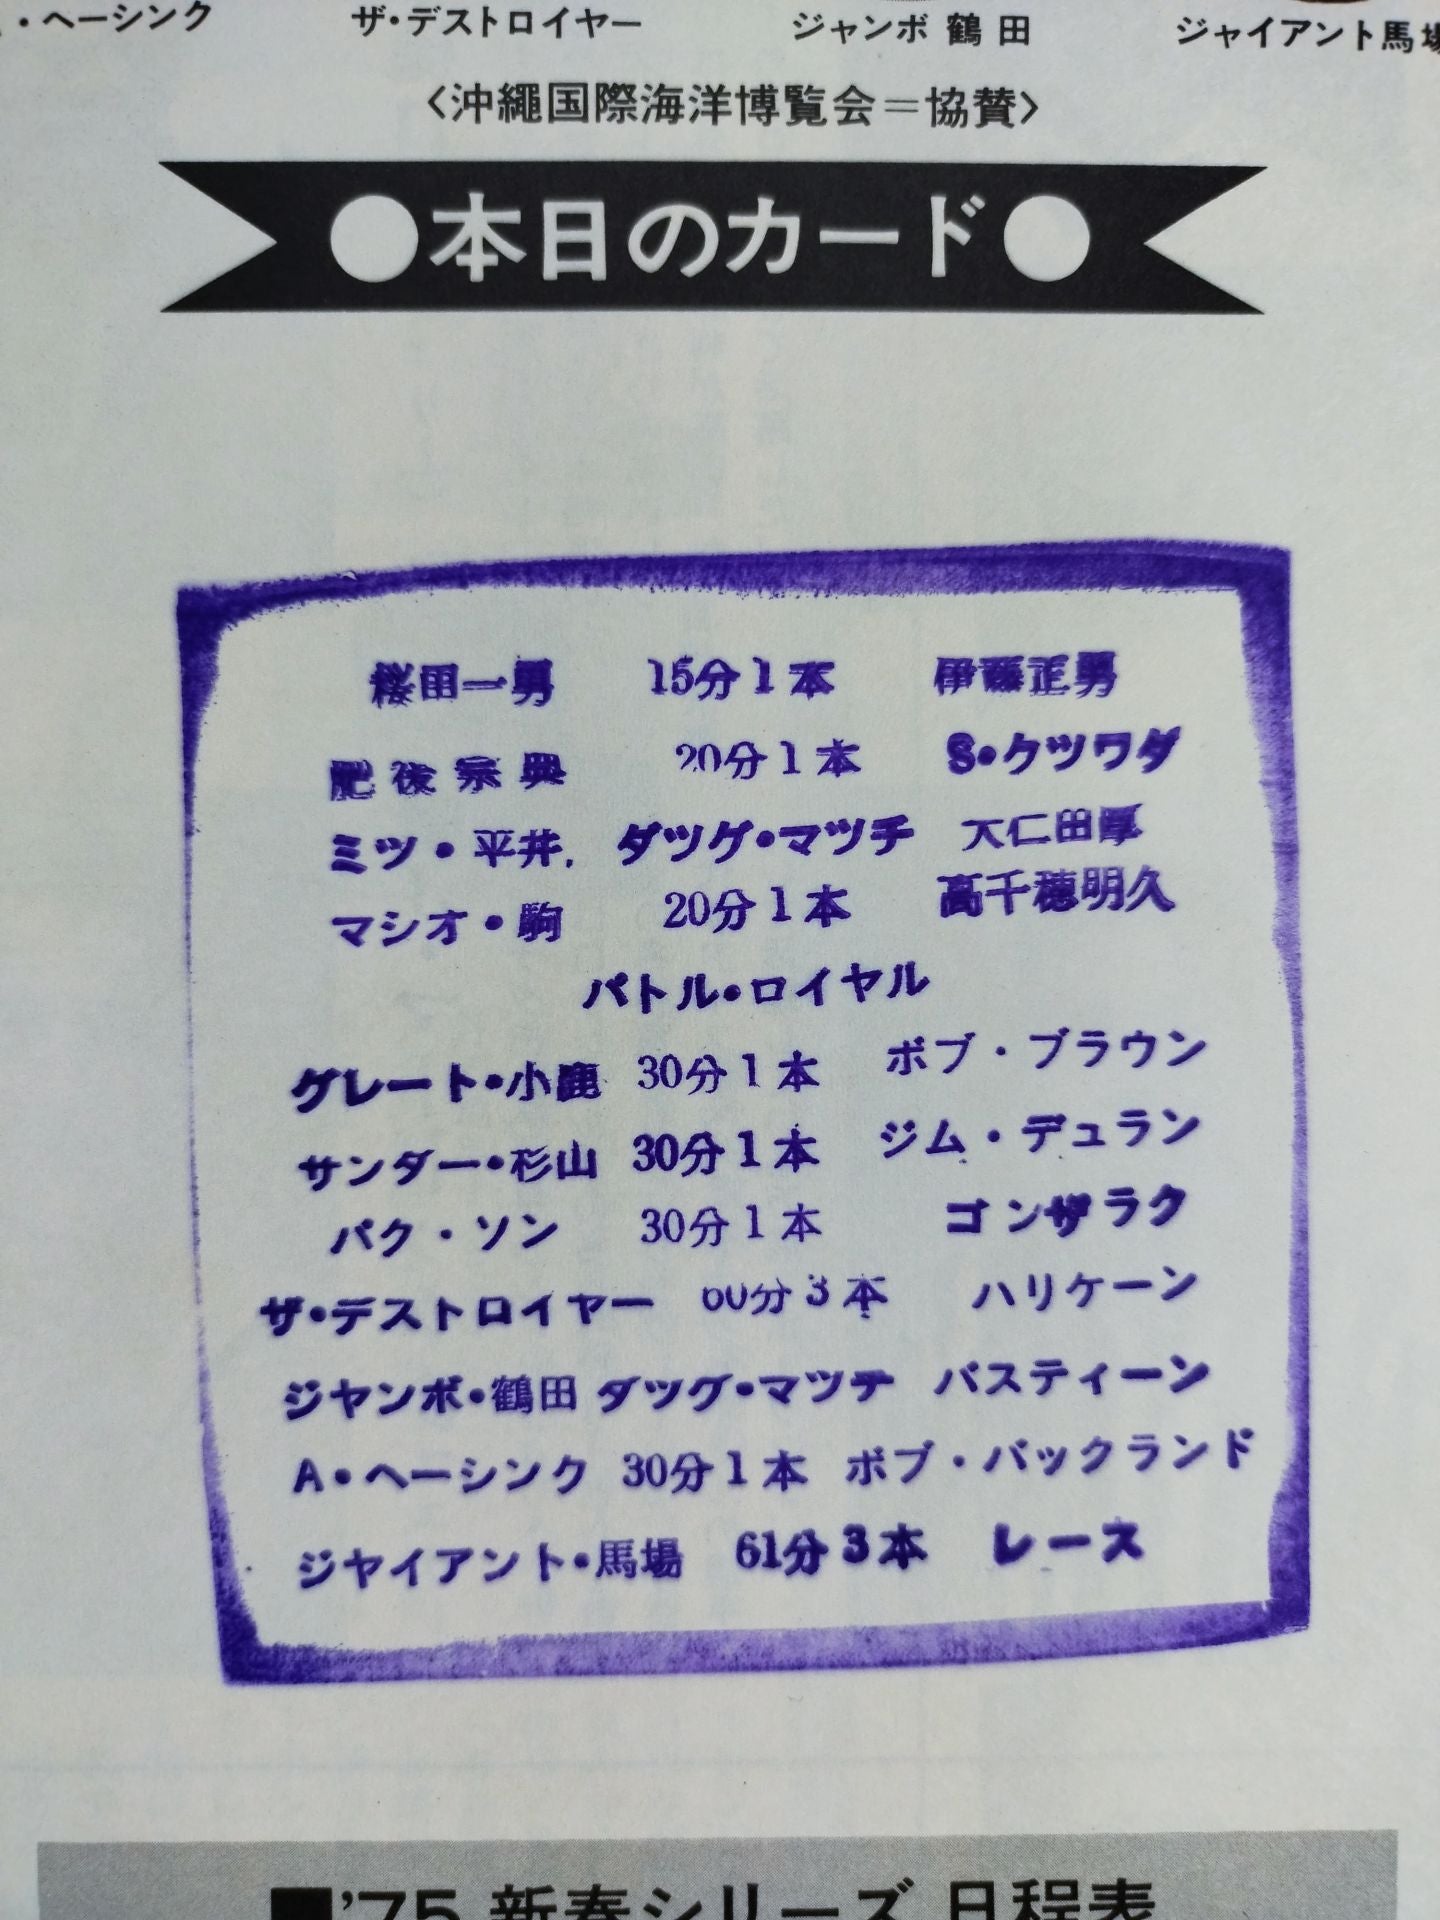 ・ヘーシンク ザ・デストロイヤー ジャンボ鶴田 ジャイアント馬場
〈沖縄国際海洋博覧会=協賛〉
●本日のカード●
桜田一男 15分1本 伊藤正男
肥後宗典 20分1本 S・クツワダ
ミツ・平井 タツグ・マツチ 大仁田厚
マシオ・駒 20分1本 高千穂明久
バトル・ロイヤル
グレート・小鹿 30分1本 ボブ・ブラウン
サンダー・杉山 30分1本 ジム・デュラン
パク・ソン 30分1本 ゴンザラク
ザ・デストロイヤー 60分3本 ハリケーン
ジヤンボ・鶴田 タツグ・マツチ バスティーン
A・ヘーシンク 30分1本 ボブ・バックランド
ジヤイアント・馬場 61分3本 レース
■'75 新春シリーズ 日程表